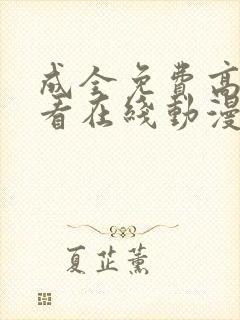 成全免费高
看在线動漫
夏芷薰